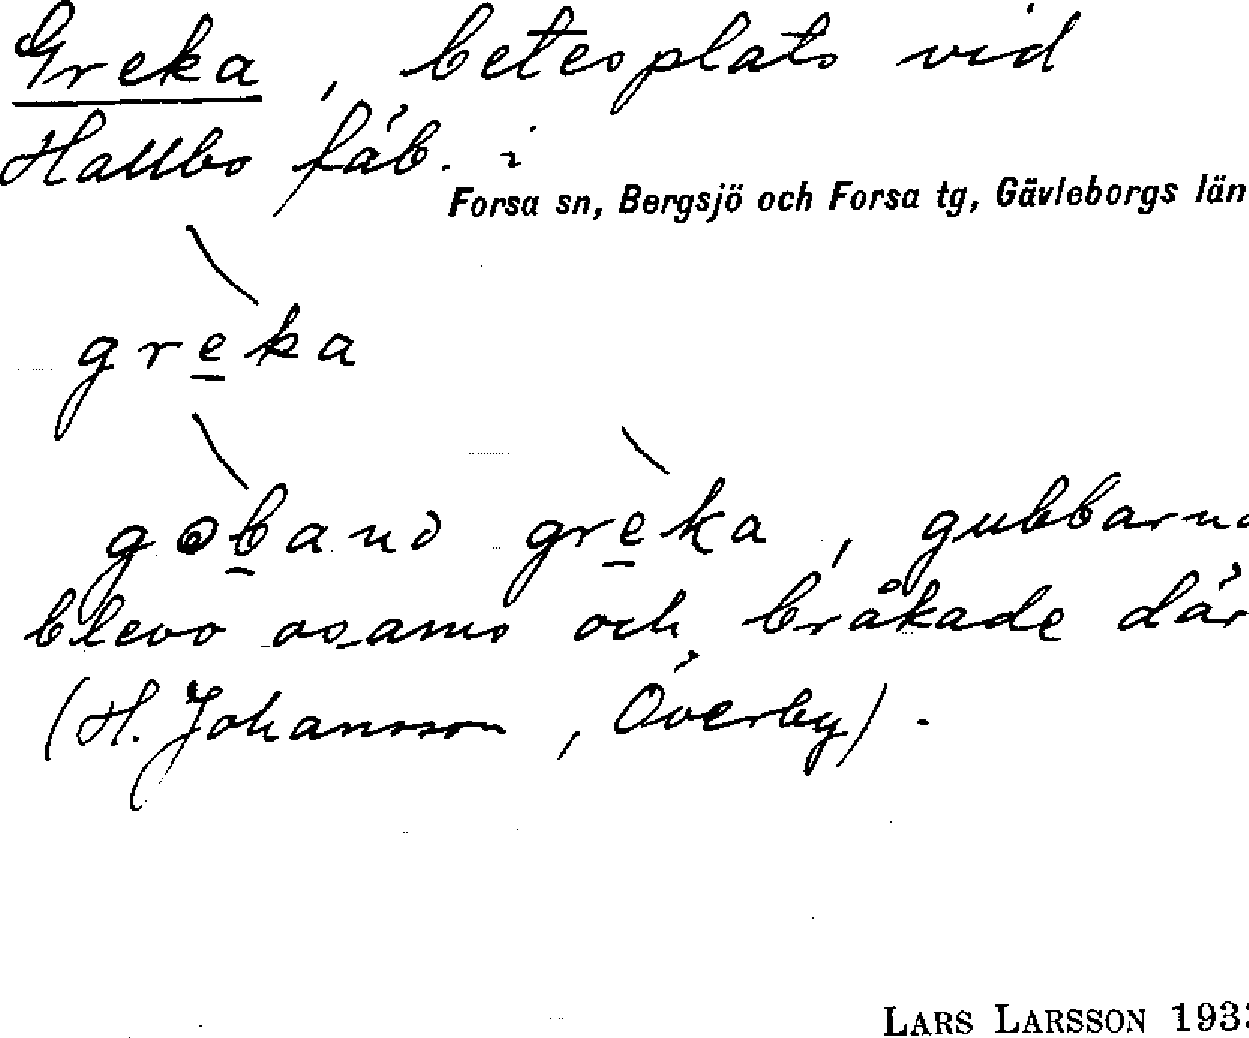 Greka, betesplats vid
Hallbo fäb. i
Forsa sn, Bergsjö och Forsa tg, Gävleborgs län
greka
greka, gubbarna
blevo osams och bråkade där
(H. Johansson, Överby).
LARS LARSSON 1933